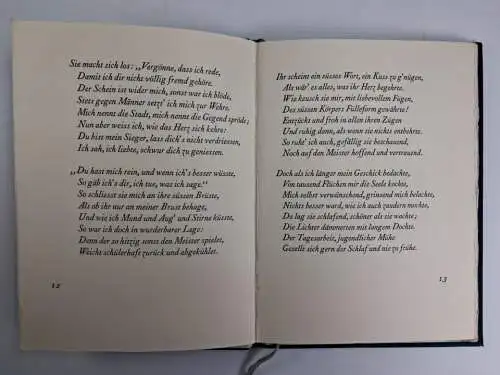 Sie macht sich los: „Vergönne, dass ich rede,
Damit ich dir nicht völlig fremd gehöre.
Der Schein ist wider mich, sonst war ich blöde,
Stets gegen Männer setzt' ich mich zur Wehre.
Mich nennt die Stadt, mich nennt die Gegend spröde;
Nun aber weiss ich, wie das Herz sich kehre:
Du bist mein Sieger, lass dich's nicht verdriessen,
Ich sah, ich liebte, schwur dich zu geniessen.
„Du hast mich rein, und wenn ich's besser wüsste,
So gäb ich's dir, ich tue, was ich sage.“
So schliesst sie mich an ihre süssen Brüste,
Als ob ihr nur an meiner Brust behage,
Und wie ich Mund und Aug' und Stirne küsste,
So war ich doch in wunderbarer Lage:
Denn der so hitzig sonst den Meister spielet,
Weicht schülerhaft zurück und abgekühlet.
12
Ihr scheint ein süsses Wort, ein Kuss zu g'nügen,
Als wär' es alles, was ihr Herz begehrte.
Wie keusch sie mir, mit liebevollem Fügen,
Des süssen Körpers Fülleform gewährte!
Entzückt und froh in allen ihren Zügen
Und ruhig dann, als wenn sie nichts entbehrte.
So ruht' ich auch, gefällig sie beschauend,
Noch auf den Meister hoffend und vertrauend.
Doch als ich länger mein Geschick bedachte,
Von tausend Flüchen mir die Seele kochte,
Mich selbst verwünschend, grinsend mich belachte,
Nichts besser ward, wie ich auch zaudern mochte,
Da lag sie schlafend, schöner als sie wachte;
Die Lichter dämmerten mit langem Dochte.
Der Tagesarbeit, jugendlicher Mühe
Gesellt sich gern der Schlaf und nie zu frühe.
13